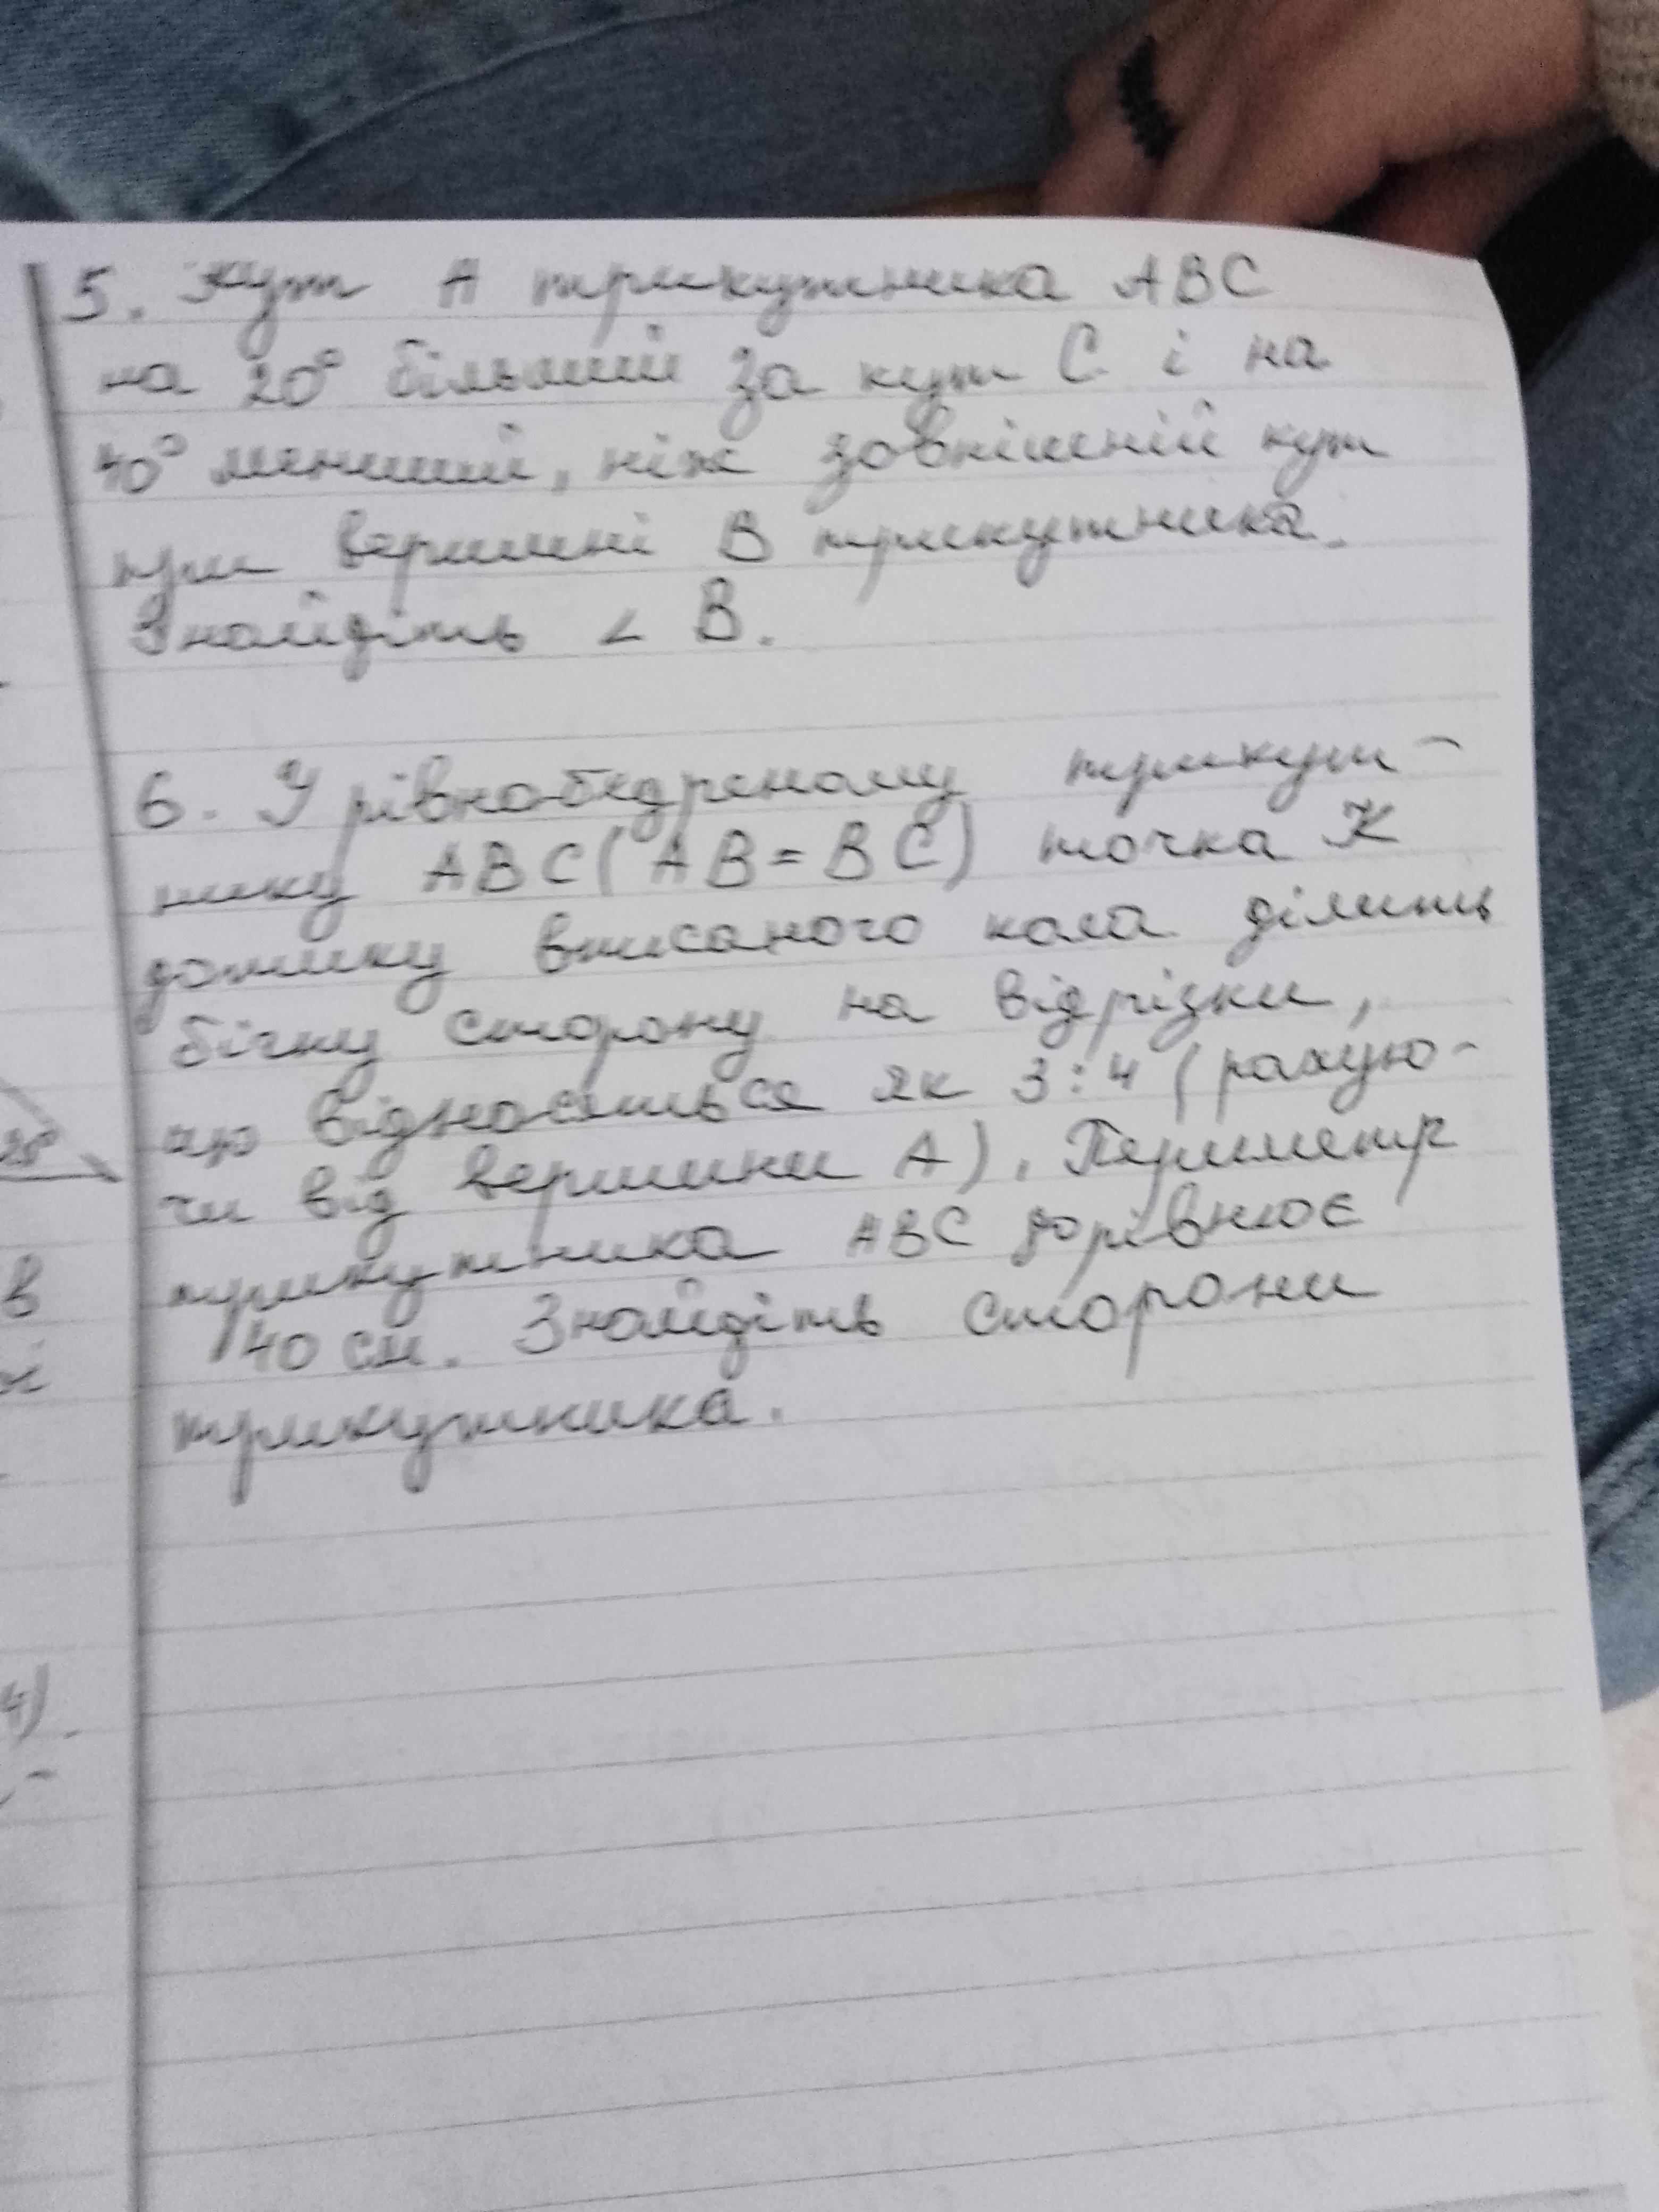 5. Кут А трикутника ABC
на 20° більший за кут С і на
40° менший, ніж зовнішній кут
при вершині В трикутника.
Знайдіть ∠ В.
6. У рівнобедреному трикут-
нику ABC (AB = BC) точка К
дотику вписаного кола ділить
бічну сторону на відрізки,
що відносяться як 3:4 (рахую-
чи від вершини А). Периметр
трикутника ABC дорівнює
40 см. Знайдіть сторони
трикутника.
25°
в
4).